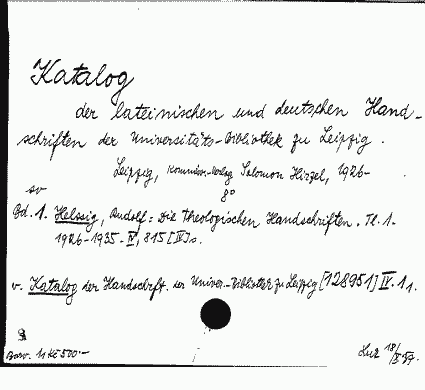 Katalog
der lateinischen und deutschen Hand-
schriften der Universitäts-Bibliothek zu Leipzig.
Leipzig, Kommiss.-Verlag Salomon Hirzel, 1926-
8°
Bd. 1. Helssig, Rudolf: Die theologischen Handschriften. Tl. 1.
1926-1935. IV, 815 [IV] s.
v. Katalog der Handschrft. der Univer.-Bibliothek zu Leipzig [128951] IV. 1 1.
Barv. 1/1 Kč 500.-